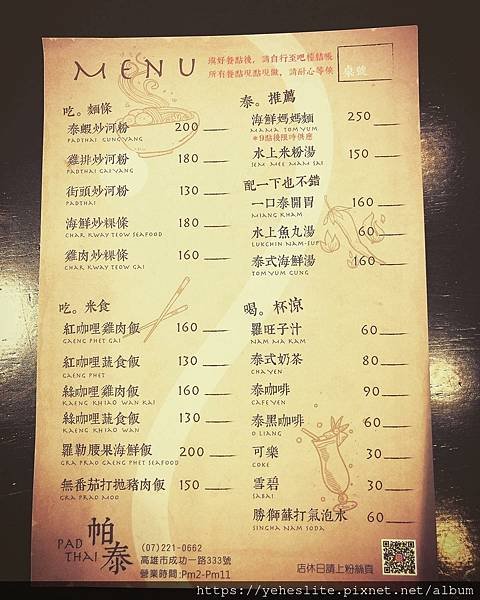 MENU
填好餐點後，請自行至吧檯結帳
所有餐點現點現做，請耐心等候
桌號
吃。麵條
泰蝦炒河粉 200
PADTHAI GUNG YANG
雞排炒河粉 180
PADTHAI GAI YANG
街頭炒河粉 130
PADTHAI
海鮮炒粿條 180
CHAR KWAY TEOW SEAFOOD
雞肉炒粿條 160
CHAR KWAY TEOW GAI
吃。米食
紅咖哩雞肉飯 160
GAENG PHET GAI
紅咖哩蔬食飯 130
GAENG PHET
綠咖哩雞肉飯 160
KAENG KHIAO WAN KAI
綠咖哩蔬食飯 130
KAENG KHIAO WAN
羅勒腰果海鮮飯 200
GRA PRAO GAENG PHET SEAFOOD
無番茄打拋豬肉飯 150
GRA PRAO MOO
泰。推薦
海鮮媽媽麵 250
MAMA TOM YUM
*9點後限時供應
水上米粉湯 150
SEM MEE MAM SAI
配一下也不錯
一口泰開胃 160
MIANG KHAM
水上魚丸湯 60
LUKCHIN NAM-SUP
泰式海鮮湯 160
TOM YUM GUNG
喝。杯涼
羅旺子汁 60
NAM MA KAM
泰式奶茶 80
CHA YEN
泰咖啡 90
CAFE YEN
泰黑咖啡 60
O LIANG
可樂 30
COKE
雪碧 30
SABAI
勝獅蘇打氣泡水 60
SINGHA NAM SODA
PAD THAI 帕泰
(07)221-0662
高雄市成功一路333號
營業時間:Pm2-Pm11
店休日請上粉絲頁
https://yeheslite.pixnet.net/album